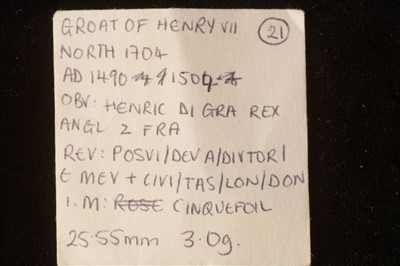 GROAT OF HENRY VII
21
NORTH 1704
AD 1490 1504
OBV: HENRIC DI GRA REX
ANGL 2 FRA
REV: POSVI/DEV A/DIVTOR/
E MEV + CIVI/TAS/LON/DON
I.M: ROSE CINQUEFOIL
25.55mm 3.0g.